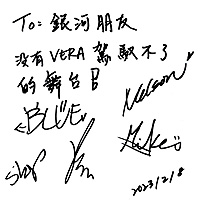 To: 銀河朋友
没有VERA駕馭不了
的舞台!
<BLUE>
Nelson
Mike
2023/2/8